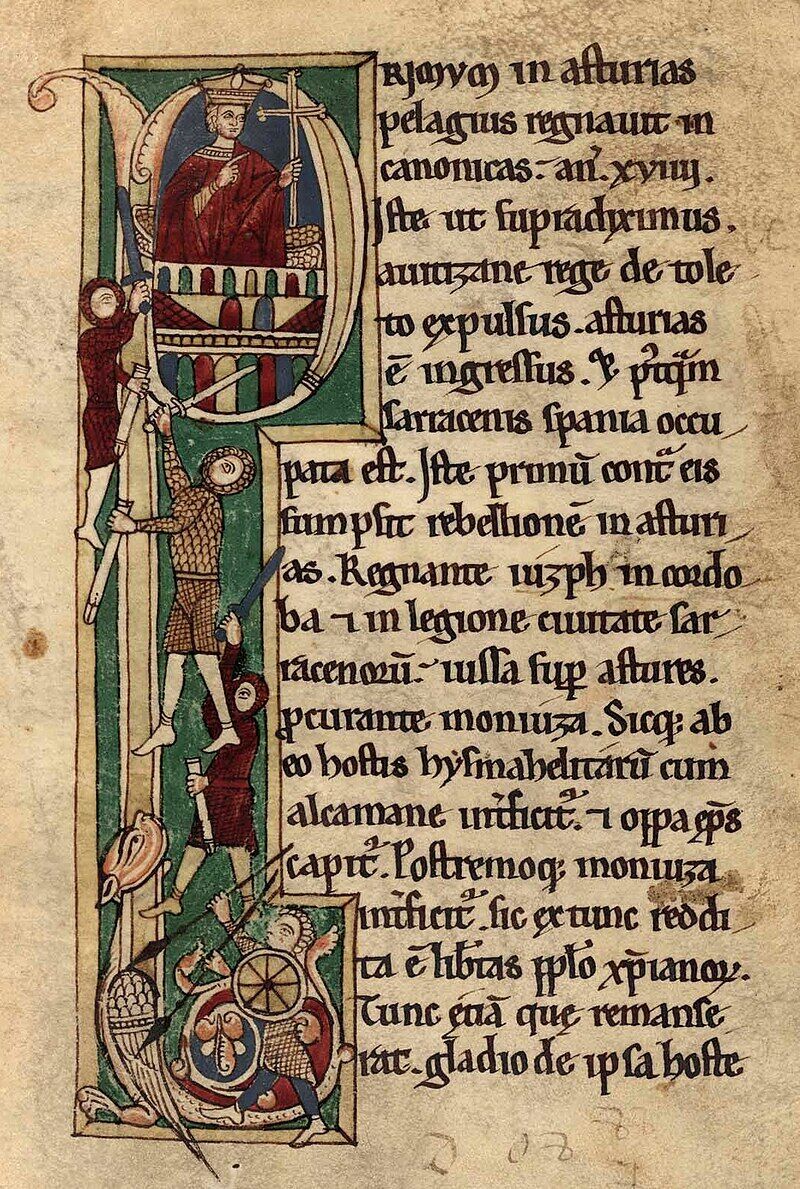 PRIMUM in asturias
pelagius regnauit in
canonicas. an̄. xviiii.
Iste ut supradiximus.
auitizane rege de tole
to expulsus. asturias
ē ingressus. & p̄tq̄m
sarracenis spania occu
pata est. Iste primū contᵃ eis
sumpsit rebellionē in asturi
as. Regnante iuzph in cordo
ba ⁊ in legione ciuitate sar
racenorū. iussa suꝑ astures.
ꝓcurante moniuza. Sicqꝫ ab
eo hostis hysmahelitarū cum
alcamane int̄ficitᷣ. ⁊ oppa ep̄s
capitᷣ. Postremoqꝫ moniuza
int̄ficitᷣ. sic ex tunc reddi
ta ē lib̄tas pp̄lo xp̄ianoꝝ.
Tunc etiā que remanse
rat. gladio de ipsa hoste